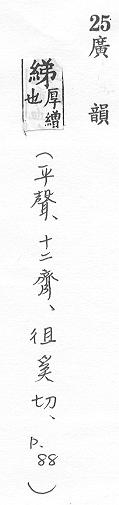 25廣韻
綈厚繒也
(平聲、十二齊、徂奚切、p.88)